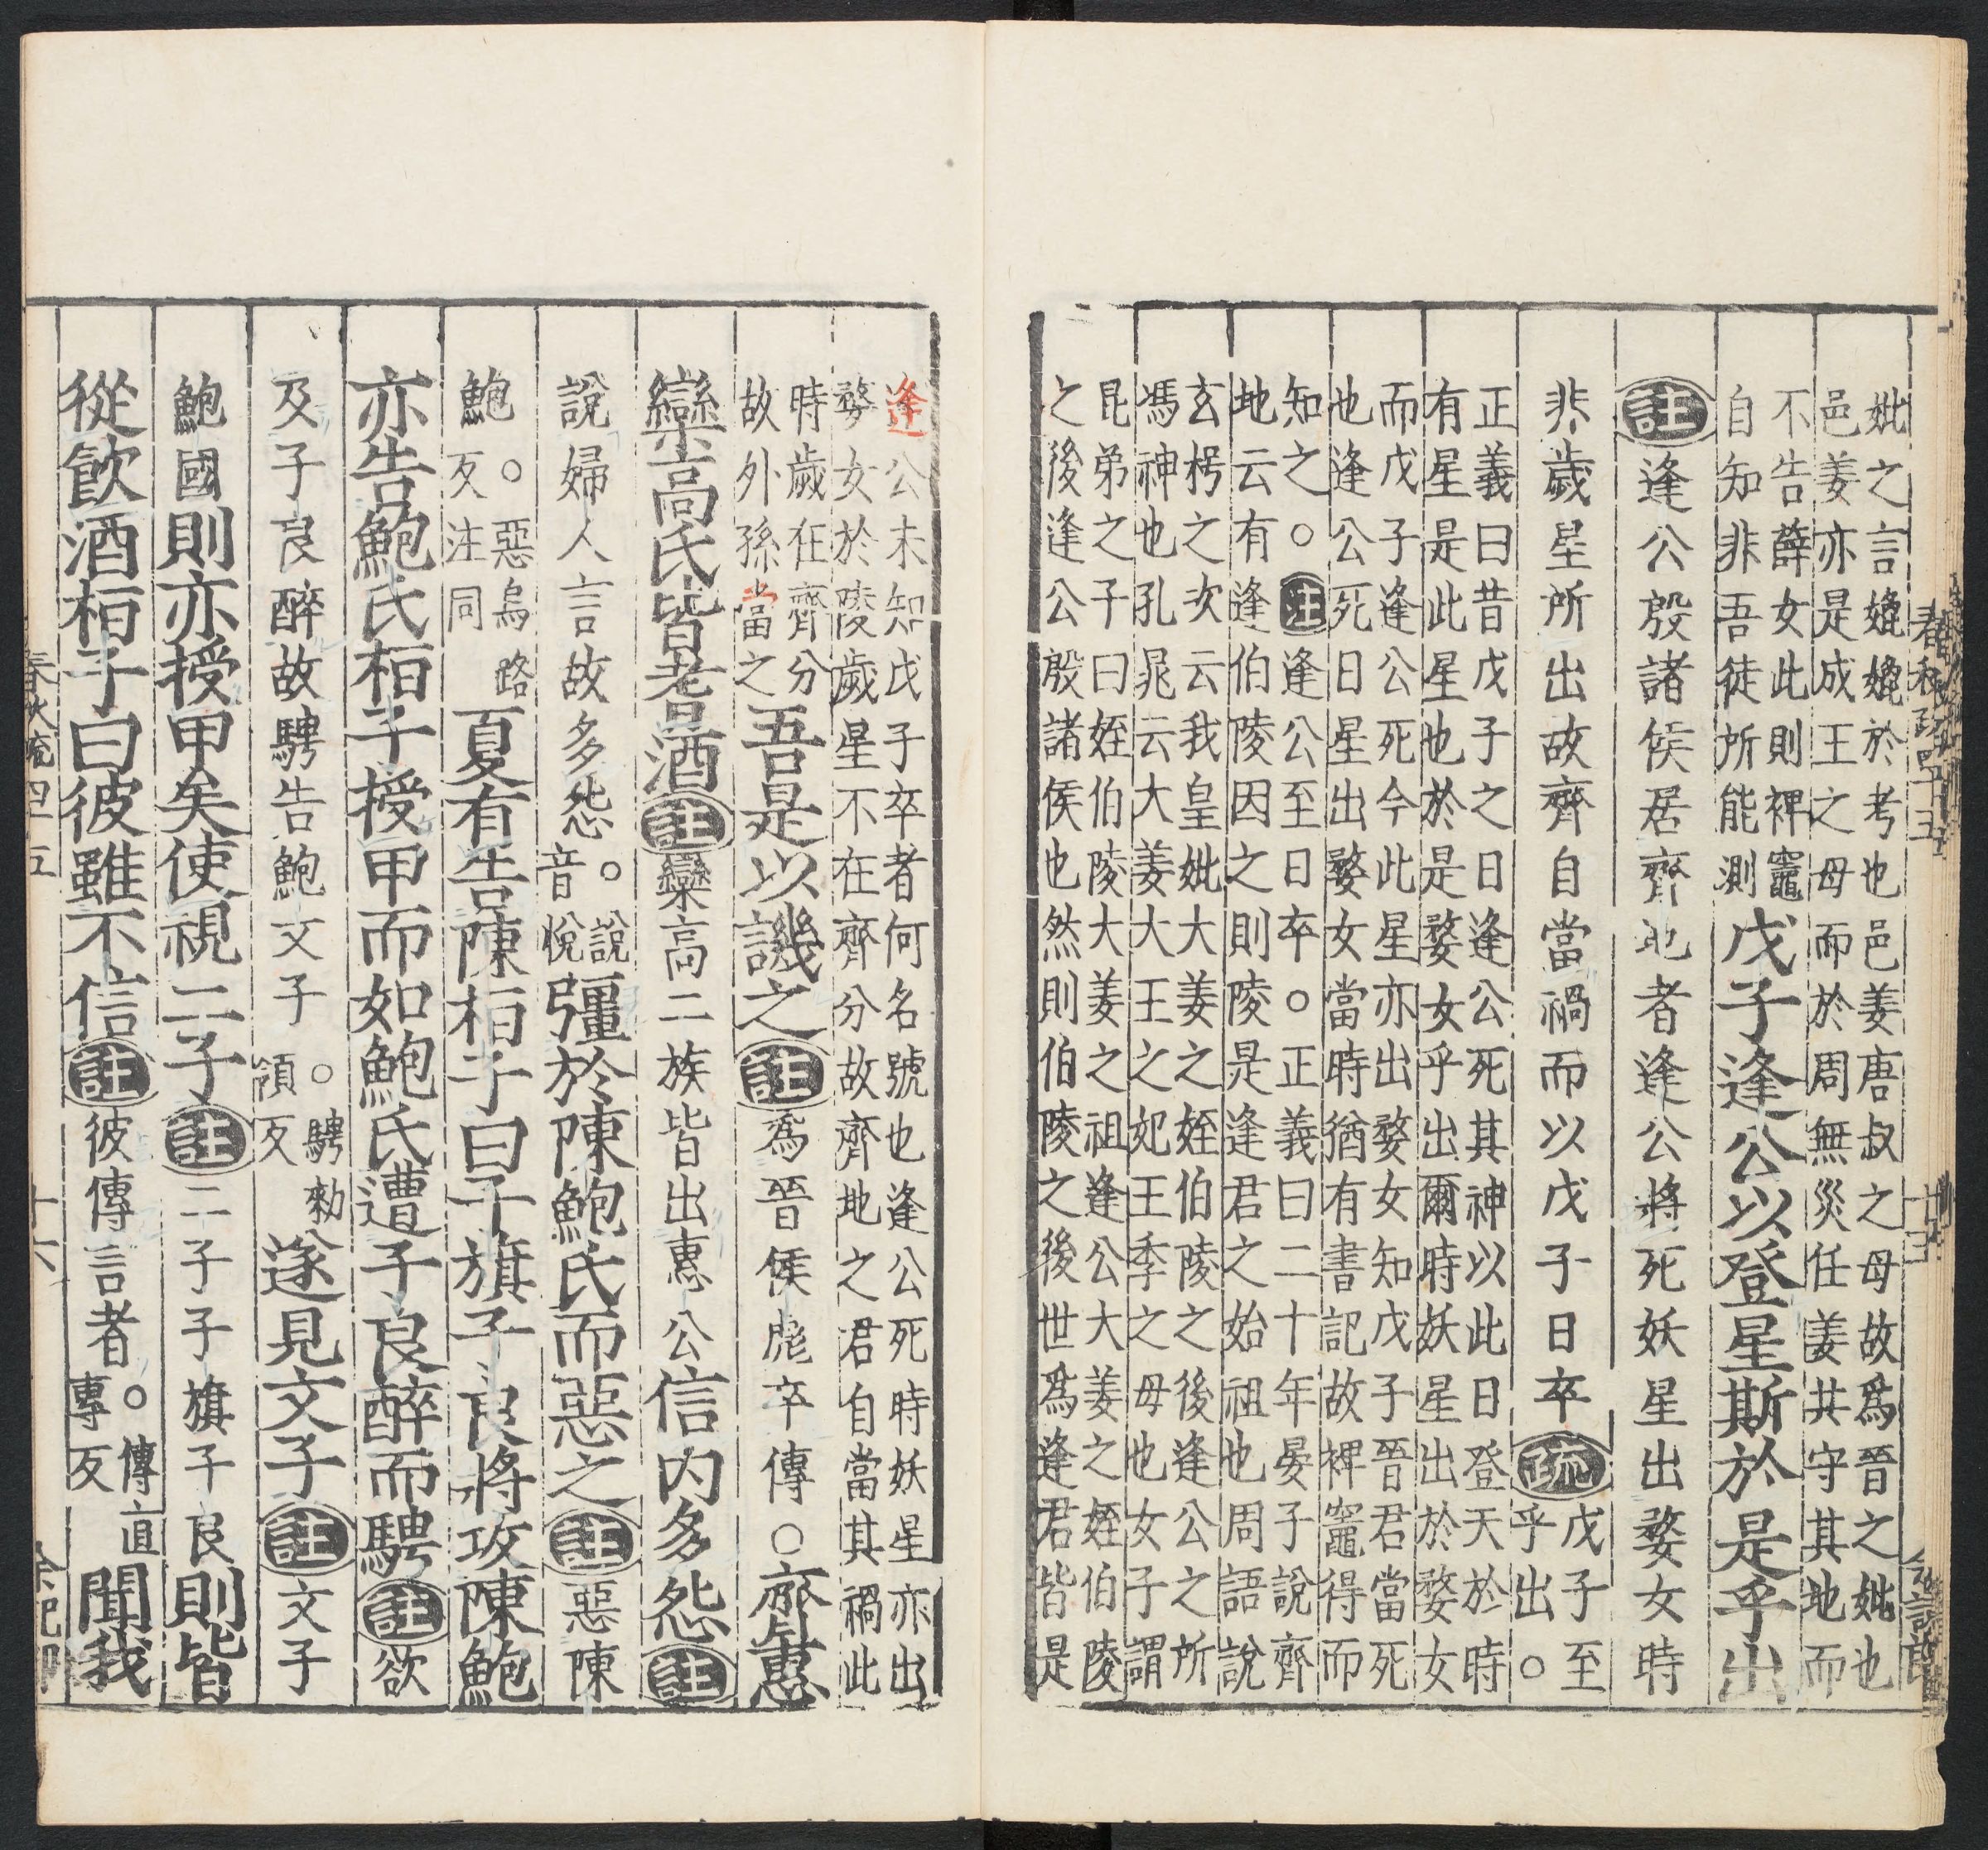 妣之言媲媲於考也邑姜唐叔之母故爲晉之妣也
邑姜亦是成王之母而於周無災任姜共守其地而
不告薛女此則裨竈
自知非吾徒所能測
戊子逢公以登星斯於是乎出
註逢公殷諸侯居齊地者逢公將死妖星出婺女時
非歲星所出故齊自當禍而以戊子日卒疏
戊子至
乎出。
正義曰昔戊子之日逢公死其神以此日登天於時
有星是此星也於是婺女乎出爾時妖星出於婺女
而戊子逢公死今此星亦出婺女知戊子晉君當死
也逢公死日星出婺女當時猶有書記故裨竈得而
知之。註逢公至日卒。正義曰二十年晏子說齊
地云有逢伯陵因之則陵是逢君之始祖也周語說
玄枵之次云我皇妣大姜之姪伯陵之後逢公之所
馮神也孔晁云大姜大王之妃王季之母也女子謂
昆弟之子曰姪伯陵大姜之祖逢公大姜之姪伯陵
之後逢公殷諸侯也然則伯陵之後世爲逢君皆是
逢公未知戊子卒者何名號也逢公死時妖星亦出
婺女於陵歲星不在齊分故齊地之君自當其禍此
時歲在齊分
故外孫當之
吾是以譏之註爲晉侯彪卒傳○齊惠
欒高氏皆耆酒註欒高二族皆出惠公信内多怨註
說婦人言故多怨。說
音悅
彊於陳鮑氏而惡之註惡陳
鮑。惡烏路
反注同
夏有告陳桓子曰子旗子良將攻陳鮑
亦告鮑氏桓子授甲而如鮑氏遭子良醉而騁註欲
及子良醉故騁告鮑文子。騁敕
領反
遂見文子註文子
鮑國則亦授甲矣使視二子註二子子旗子良則皆
從飲酒桓子曰彼雖不信註彼傳言者。傳直
專反
聞我
春秋疏四五
十六